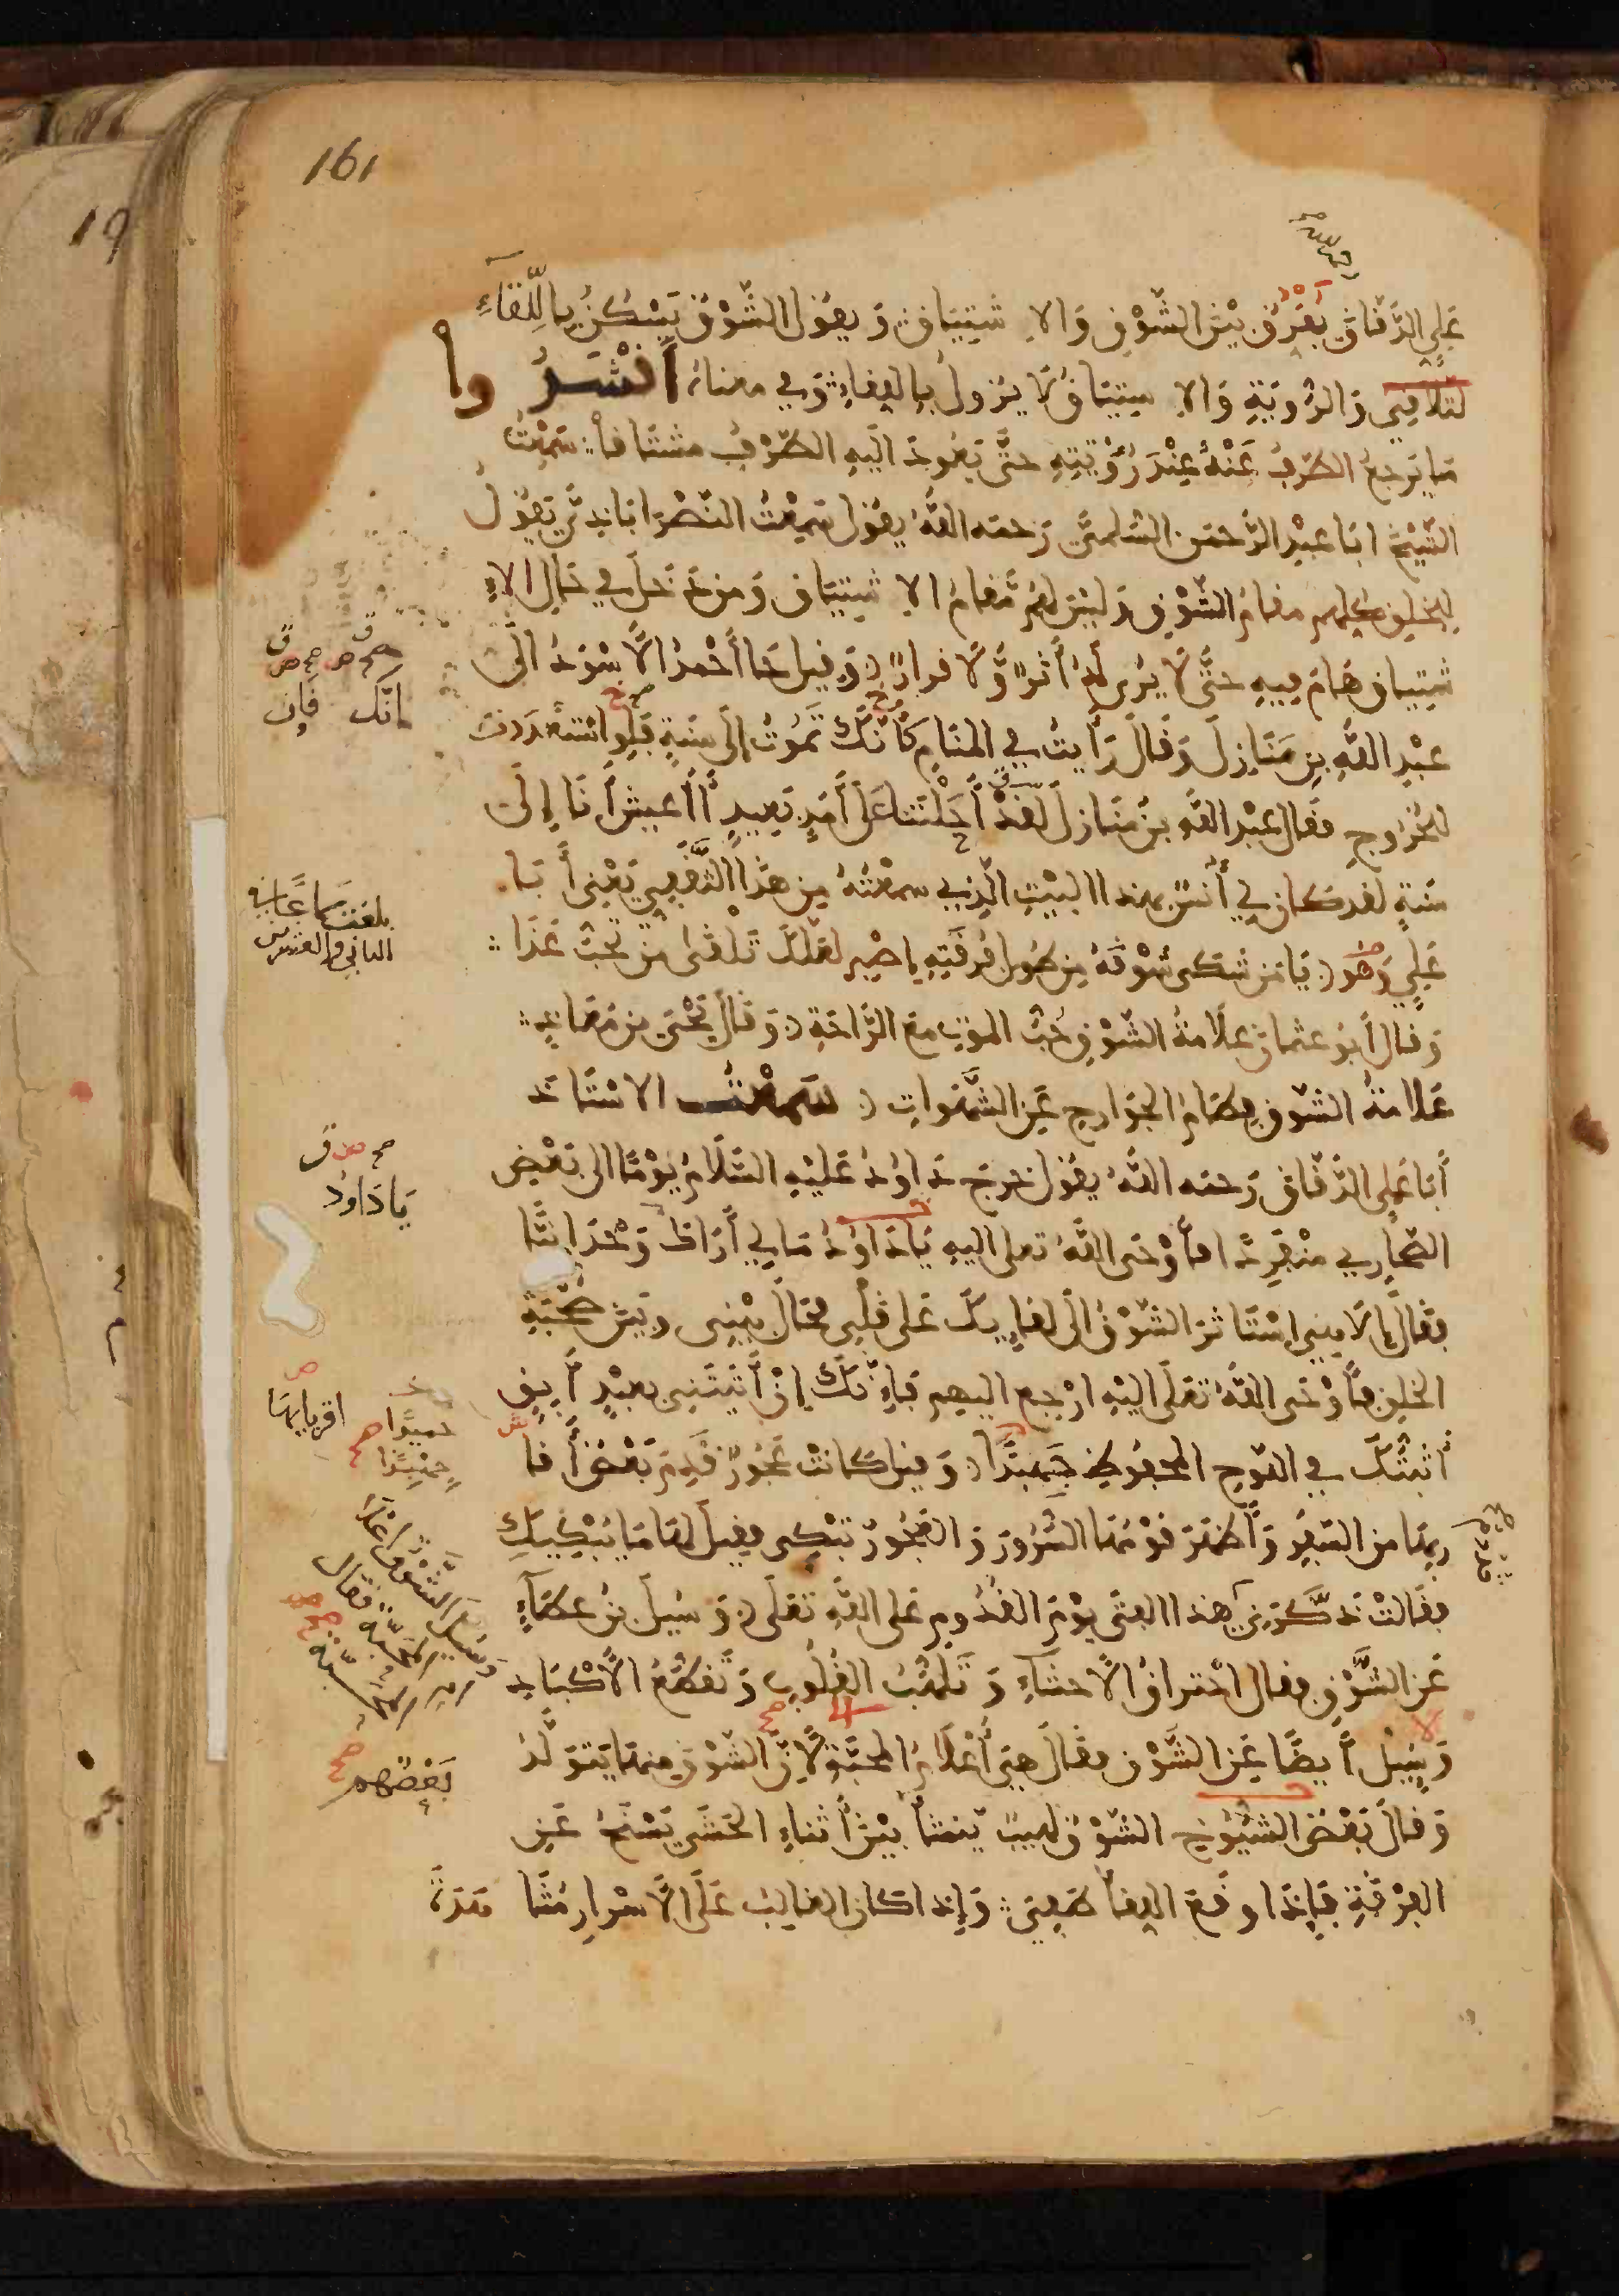 161
19
رحمه الله
عَلِي الدَّقَّاق يُفَرِّق بَيْنَ الشَّوْقِ وَالاِشْتِيَاقِ وَيقُول الشَّوْق يَسْكُنُ بِاللِّقَاءِ وا
لتَّلَاقِي وَالرُّويَةِ وَالاِشتِيَاقُ لَا يَزولُ بِاللِقاءِ وَفي معناهُ أَنْشَدُ
مَا يَرجعُ الطَّرفُ عَنْهُ عِنْدَ رُؤْيَتِهِ حتَّى يَعُودَ اليهِ الطَّرْف مشتَاقا سَمِعْتُ
الشَّيْخَ ابَا عبدِ الرَّحمَن السُّلَمِيَّ رَحمه اللهُ يقُول سَمِعْتُ النَّصْرَ ابَاذِيَّ يَقُولُ
لِلخَلقِ كلِّهم مقامُ الشَّوْقِ وَلَيْسَ لَهُم مَّقامُ الاِشتِيَاق وَمن دَخلَ في حَالِ الاِ
شتِيَاق هَامَ فيهِ حتَّى لَا يُرى لَهُ أَثَرٌ وَّلَا قرارٌ وَقِيلَ جَا أَحْمدُ الَاسْوَدُ الَى
عبْدِ اللهِ بنِ مَنَازِلَ وَقَالَ رَأيتُ في المنَامِ كَأَنَّكَ تَمُوتُ إلَى سَنَةٍ فَلَوِ اسْتَعْدَدتَ
للخُرُوجِ فقَال عبْد اللهِ بنُ مَنَازلَ لَقَدْ أَجَّلْتَنا عَلَى أَمَدٍ بَعِيدٍ أَأَعيشُ أَنَا إلَى
سَنةٍ لقد كان لي أُنسٌ بهذا البَيْتِ الَّذِي سمعْتُهُ مِن هَذَا الثَّقَفِي يَعْنِي أَبَا
عَلِي وَهُو يَا مَن شكى شوْقَهُ مِن طُولِ فُرقَتِهِ اِصْبِر لعَلَّكَ تَلْقَى مَن تُحِبُّ غَدَا
وَقالَ أَبُو عثمانَ علَامَةُ الشَّوْقِ حُبُّ الموتِ معَ الرَّاحَةِ وَقَالَ يَحْيَى بن مُعَاذٍ
عَلَامَةُ الشَّوقِ فِطَامُ الجَوَارِحِ عَنِ الشَّهَوَاتِ سَمِعْتُ الاسْتَاذ
أَبَا عَلِي الدَّقَّاق رَحمه اللهُ يقُول خرجَ دَاوُدُ عَليْهِ السَّلَامُ يَوْمًا الى بَعْضِ
الصَّحارِي منْفرِدًا فأَوْحَى اللهُ تعلى اليهِ يَا دَاوُدُ مَا لِي أَرَاكَ وَحْدَانِيًّا
فقَالَ إلَاهِي اسْتَاثرَ الشَّوْقُ الَى لقَايِكَ عَلَى قَلْبِي فحَالَ بَيْنِي وَبَيْنَ صُحْبَةِ
الخلقِ فأَوْحَى اللهُ تعَلَى اليْهِ ارْجع اليهم فَإِنَّكَ إنْ أَتَيْتَنِي بعبْدٍ أَبِقٍ
أَثبَتُّكَ في اللَّوحِ المحفُوظِ جِهْبِذًا وَقيلَ كانتْ عَجُوزٌ قَدِمَ بَعْضُ أَقا
رِبهَا من السَّفرِ وَأَظهَرَ قوْمُهَا السُّرُورَ وَالعَجُوزُ تَبْكِى فقيلَ لهَا مَا يُبْكِيكِ
فقالَتْ ذكَّرَنِي هذا الفتَى يوْمَ القُدُومِ عَلى اللهِ تعَلَى وَسُيِلَ بنُ عَطَاءٍ
عَنِ الشَّوْقِ فقال احْتراقُ الَاحشَاءِ وَتَلَهُّبُ القُلُوبِ وَتَقَطُّعُ الَاكْبَادِ
وَسُيِلَ أَيضًا عَنِ الشَّوقِ فقَالَ هِيَ أَعْلَامُ المحَبَّةِ لَانَّ الشَّوْقَ منهَا يَتَوَلَّدُ
وَقالَ بَعْضُ الشُّيُوخِ الشَّوْقُ لهيبٌ يَّنشأُ بَيْنَ أَثناءِ الحَشَى يَسْنَحُ عَنِ
الفُرْقَةِ فَإِذَا وَقعَ اللِقَأ طَفِيَ وَإذا كانَ الغالِبُ عَلَى الَاسْرارِ مُشَا
هَدَةً
انَّك فَإن
بلغت سماعا
الثاني والعشرين
يَا دَاوُدُ
اقربايهَا
حميدًا
بَعْضُهُم